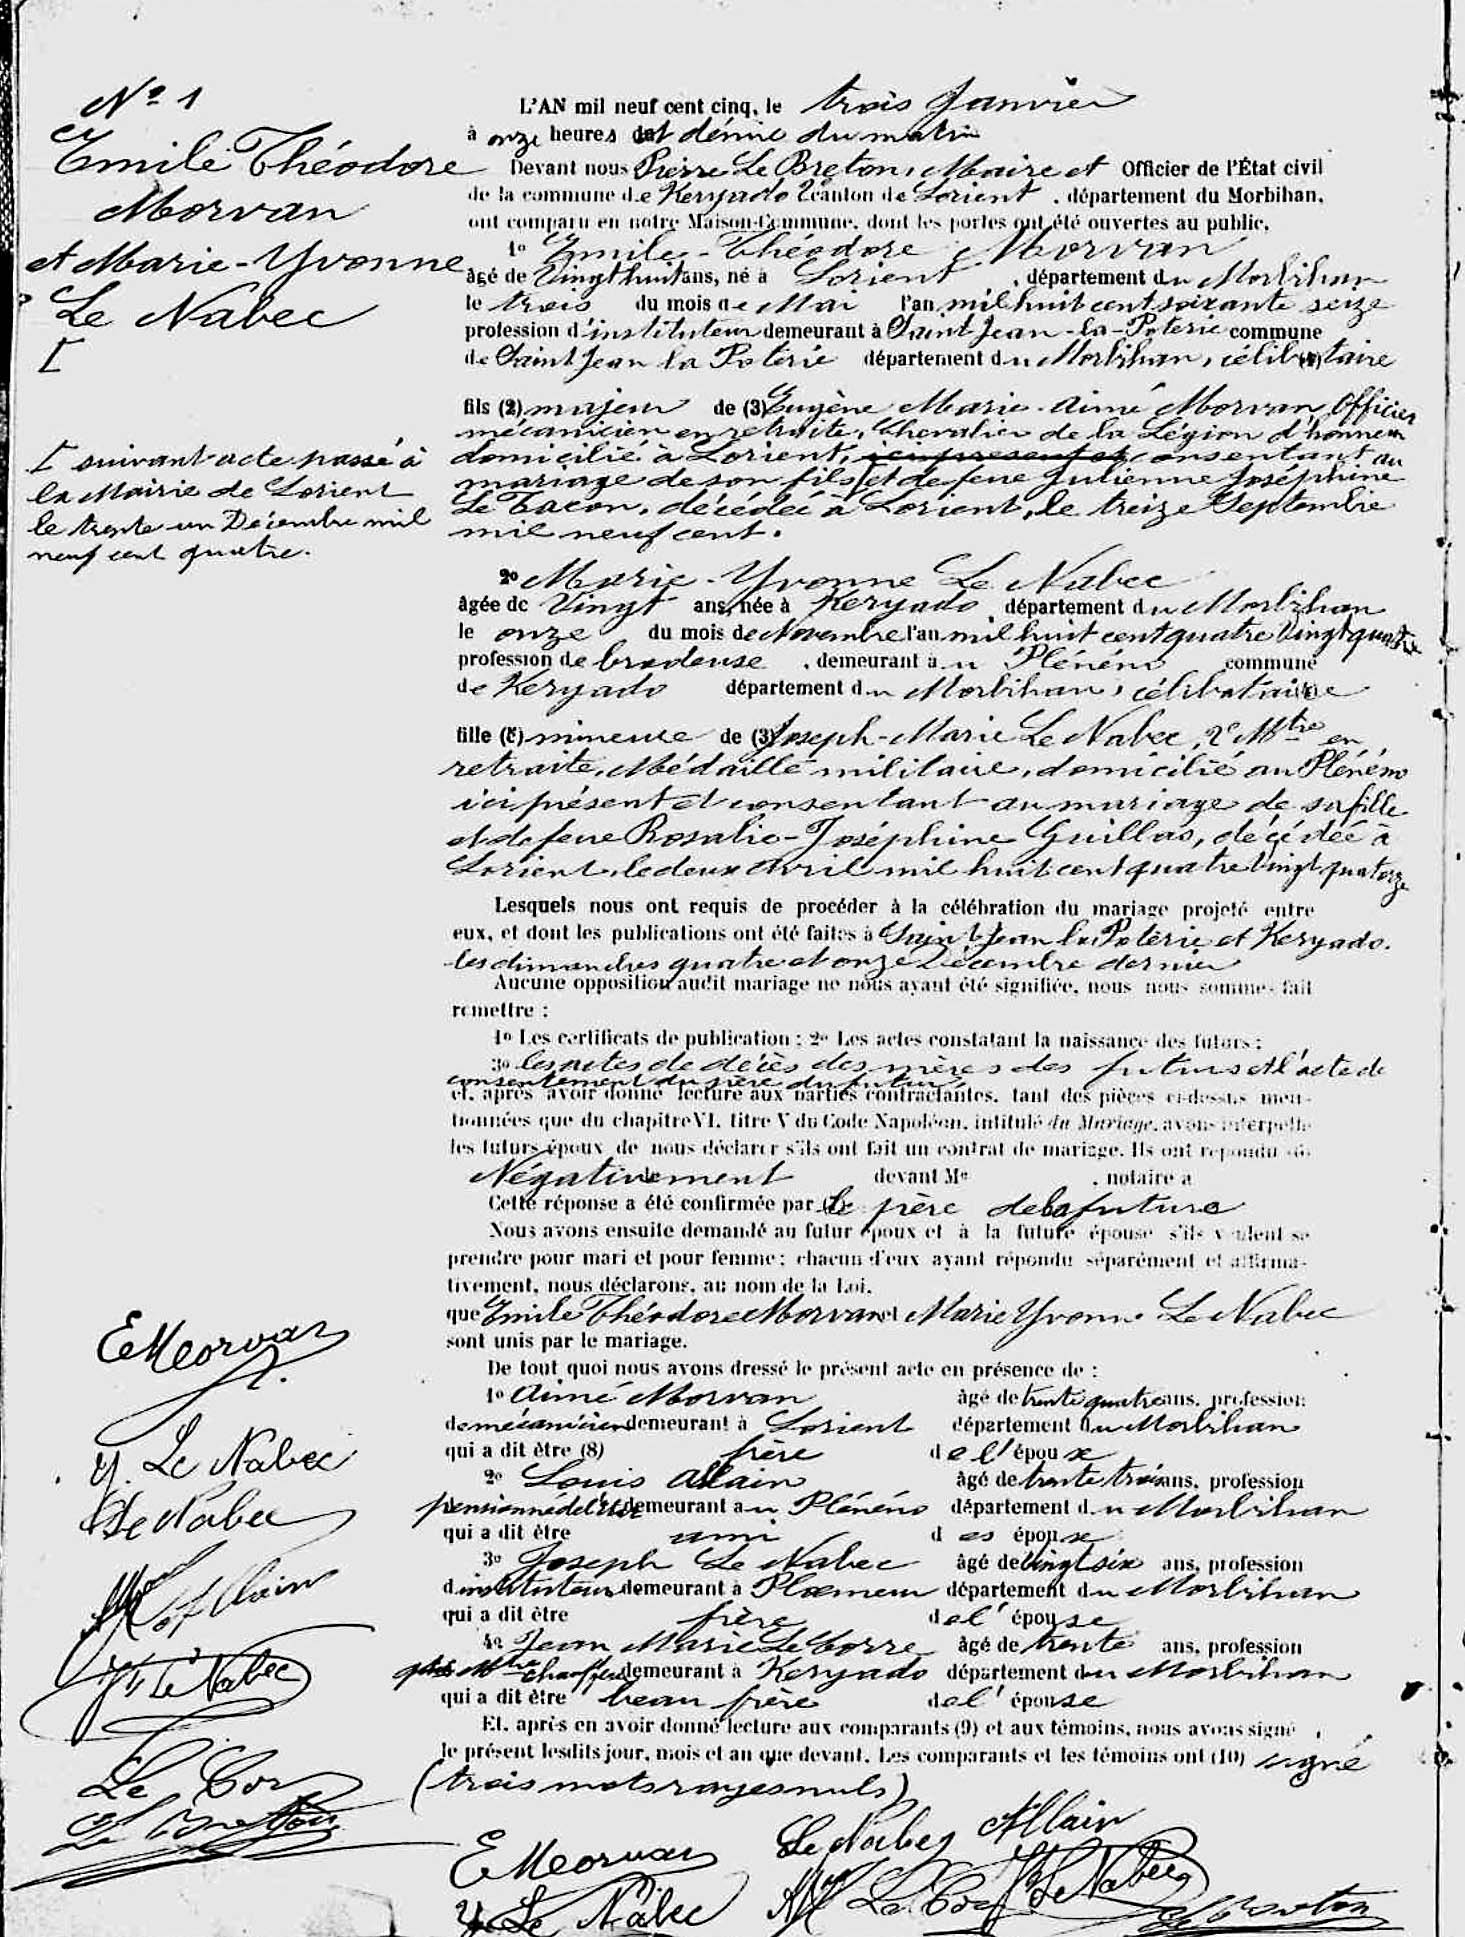 Nº 1
Emile Théodore
Morvan
et Marie-Yvonne
Le Nabec
[
[ suivant acte passé à
la Mairie de Lorient
le trente un Décembre mil
neuf cent quatre.
L'AN mil neuf cent cinq, le trois Janvier
à onze heures et démie du matin
Devant nous Pierre Le Breton, Maire et Officier de l'État civil
de la commune de Keryado 2e canton de Lorient, département du Morbihan,
ont comparu en notre Maison-Commune, dont les portes ont été ouvertes au public,
1º Emile-Théodore Morvan
âgé de Vingt huit ans, né à Lorient, département du Morbihan
le trois du mois de Mai l'an mil huit cent soixante seize
profession d'instituteur demeurant à Saint Jean-la-Poterie commune
de Saint Jean la Poterie département du Morbihan, célibataire
fils (2) majeur de (3) Eugène Marie-Aimé Morvan, Officier
mécanicien en retraite, Chevalier de la Légion d'honneur
domicilié à Lorient, consentant au
mariage de son fils [ et de feue Julienne Joséphine
Le Tacon, décédée à Lorient, le treize Septembre
mil neuf cent.
2º Marie-Yvonne Le Nabec
âgée de Vingt ans, née à Keryado, département du Morbihan
le onze du mois de Novembre l'an mil huit cent quatre Vingt quatre
profession de brodeuse, demeurant au Plénéno commune
de Keryado département du Morbihan, célibataire
fille (5) mineure de (3) Joseph-Marie Le Nabec, 2e Mtre en
retraite, Médaillé militaire, domicilié au Plénéno
ici présent et consentant au mariage de sa fille
et de feue Rosalie-Joséphine Guillas, décédée à
Lorient, le deux Avril mil huit cent quatre vingt quatorze
Lesquels nous ont requis de procéder à la célébration du mariage projeté entre
eux, et dont les publications ont été faites à Saint Jean la Poterie et Keryado.
les dimanches quatre et onze Décembre dernier
Aucune opposition audit mariage ne nous ayant été signifiée, nous nous sommes fait
remettre :
1º Les certificats de publication ; 2º Les actes constatant la naissance des futurs ;
3º les actes de décès des mères des futurs et l'acte de
consentement du père du futur,
et, après avoir donné lecture aux parties contractantes, tant des pièces ci-dessus men-
tionnées que du chapitre VI, titre V du Code Napoléon, intitulé du Mariage, avons interpellé
les futurs époux de nous déclarer s'ils ont fait un contrat de mariage. Ils ont répondu
Négativement devant Me , notaire à
Cette réponse a été confirmée par le père de la future
Nous avons ensuite demandé au futur époux et à la future épouse s'ils veulent se
prendre pour mari et pour femme ; chacun d'eux ayant répondu séparément et affirma-
tivement, nous déclarons, au nom de la Loi,
que Emile Théodore Morvan et Marie Yvonne Le Nabec
sont unis par le mariage.
De tout quoi nous avons dressé le présent acte en présence de :
1º Aimé Morvan âgé de trente quatre ans, profession
de mécanicien demeurant à Lorient département du Morbihan
qui a dit être (8) frère de l'époux
2º Louis Allain âgé de trente trois ans, profession
pensionné de l'Etat demeurant au Plénéno département du Morbihan
qui a dit être ami des époux
3º Joseph Le Nabec âgé de Vingt six ans, profession
d'instituteur demeurant à Ploemeur département du Morbihan
qui a dit être frère de l'épouse
4º Jean Marie Le Corre âgé de trente ans, profession
Mtre chauffeur demeurant à Keryado département du Morbihan
qui a dit être beau frère de l'épouse
Et, après en avoir donné lecture aux comparants (9) et aux témoins, nous avons signé
le présent lesdits jour, mois et an que devant. Les comparants et les témoins ont (10) signé
(trois mots rayés nuls)
E Morvan
Y. Le Nabec
Le Nabec
Allain
Le Nabec
Le Cor
Le Breton
E Morvan
Le Nabec
Allain
Y. Le Nabec
Le Cor
Le Nabec
Le Breton